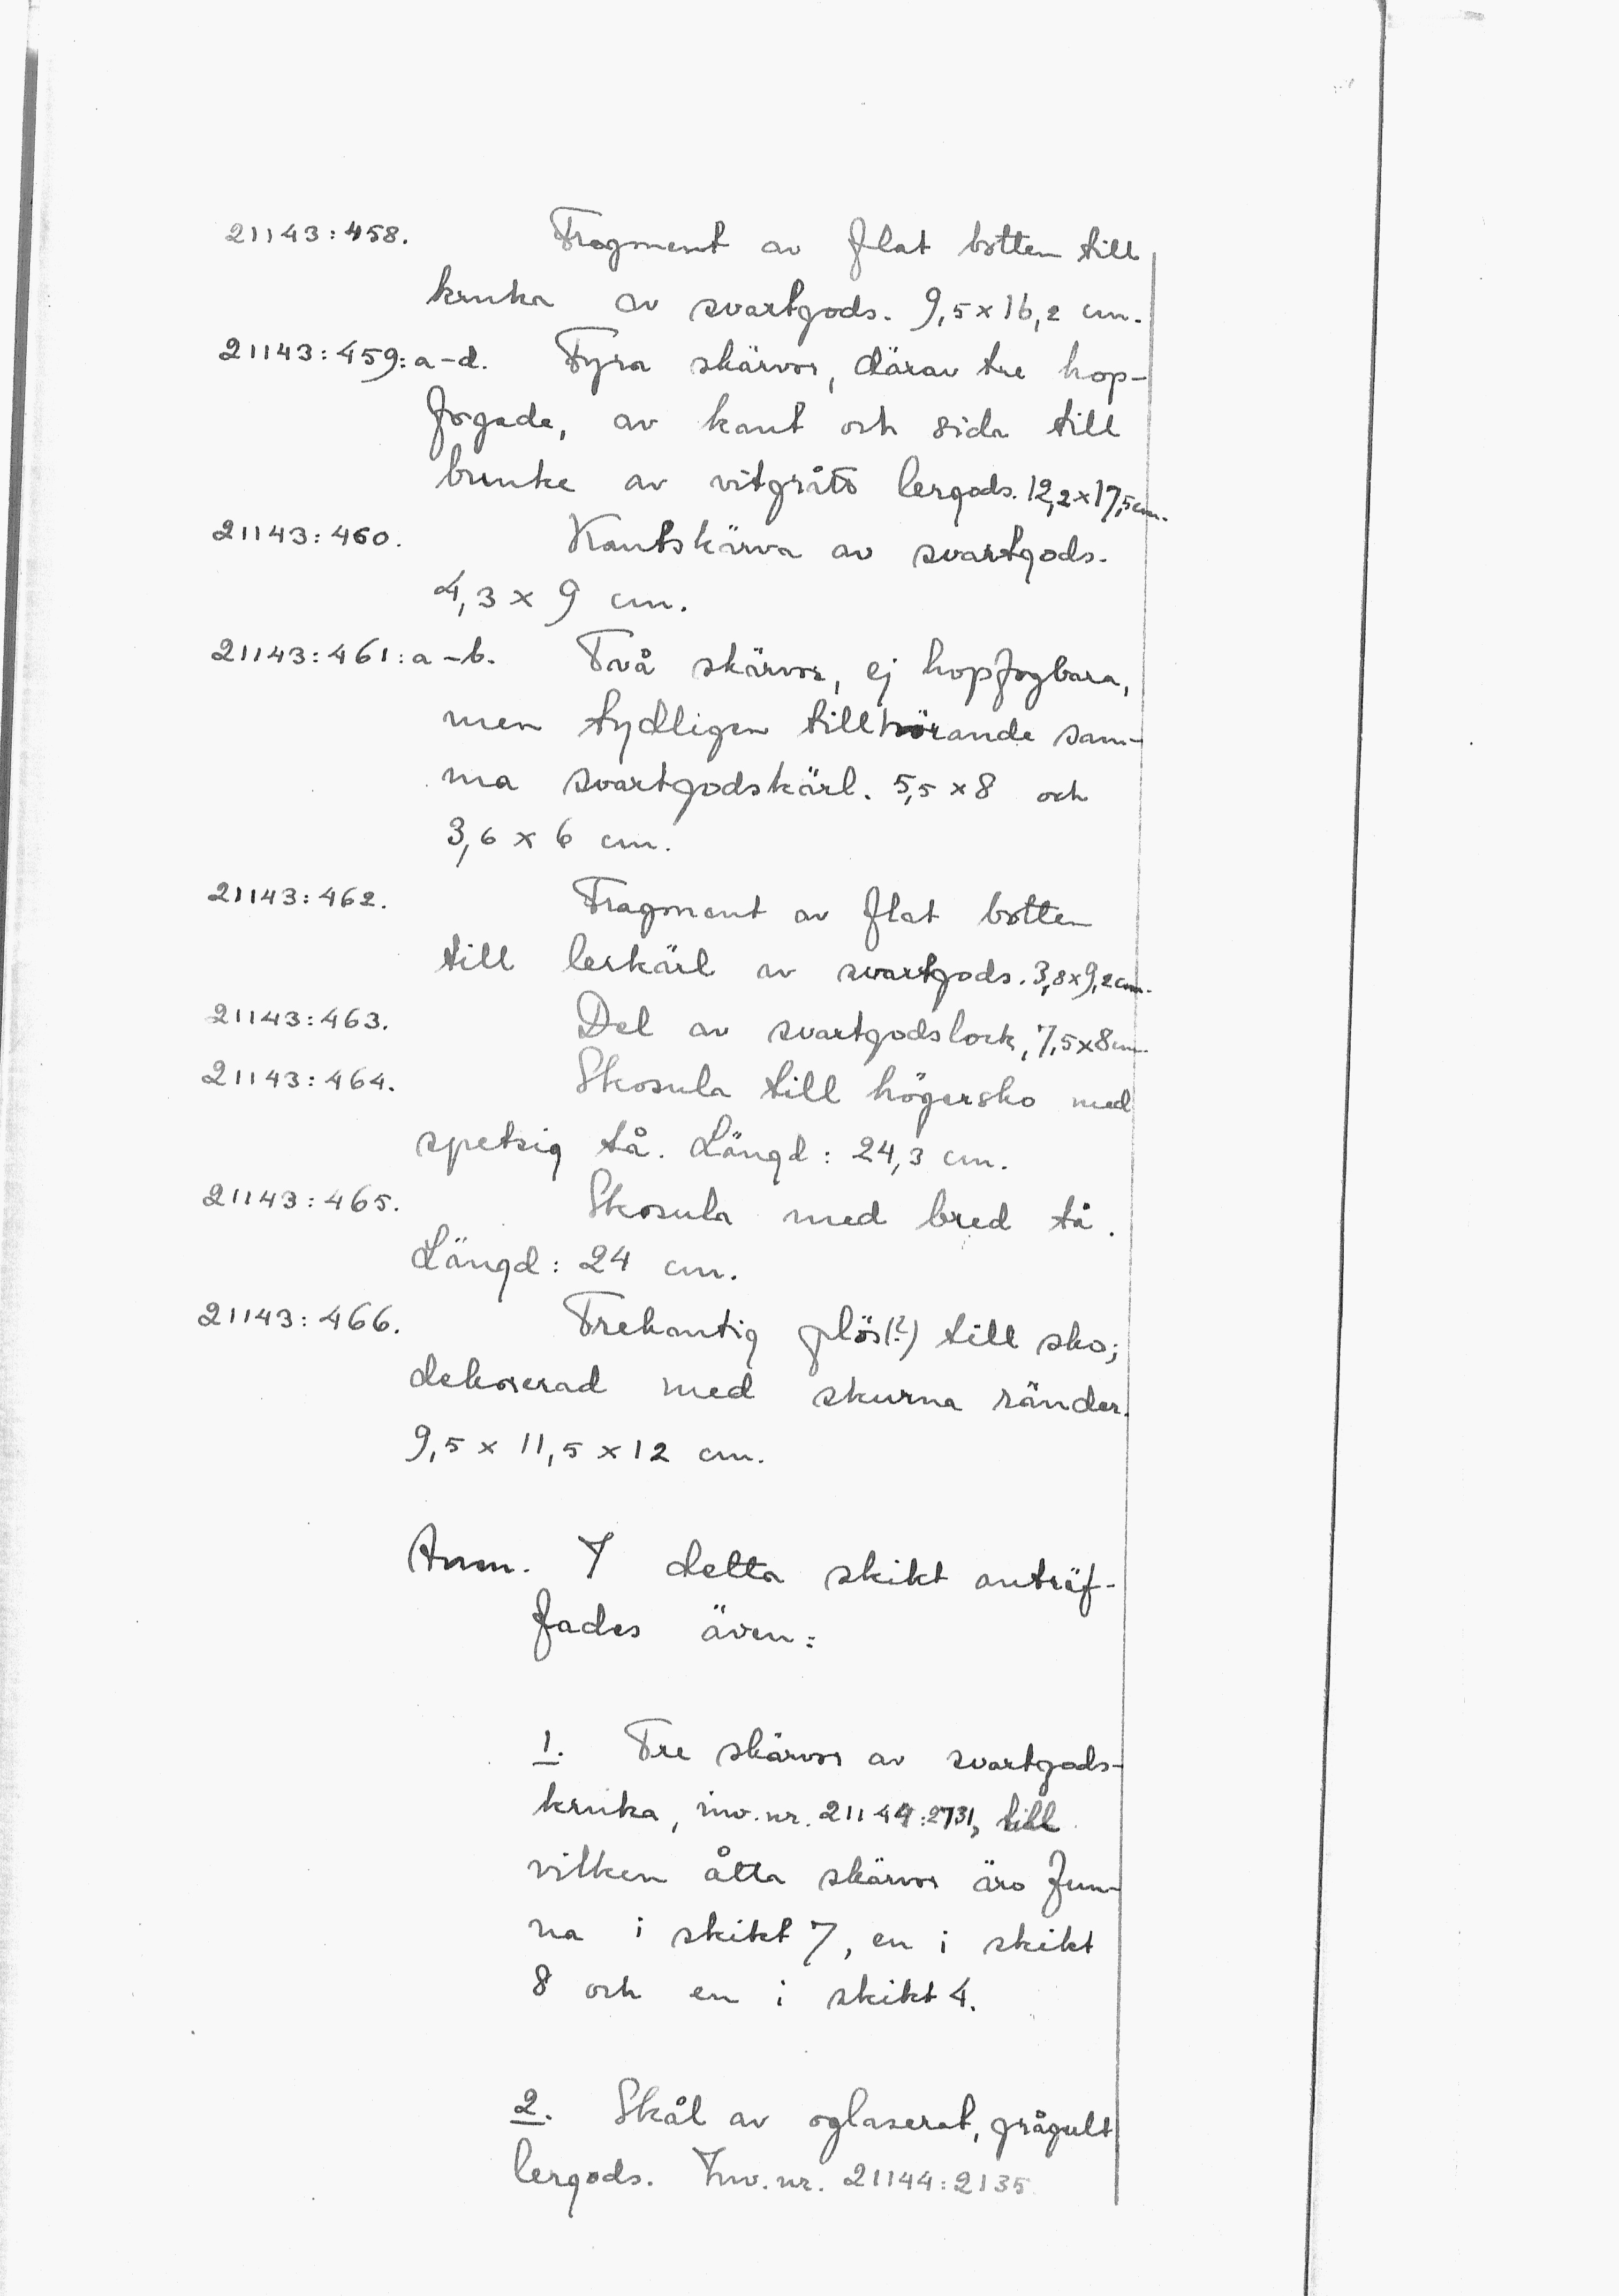 21143:458. Fragment av flat botten till
kruka av svartgods. 9,5 x 16,2 cm.
21143:459:a-d. Fyra skärvor, därav tre hop-
fogade, av kant och sida till
bunke av vitgrått lergods. 12,2 x 17,5 cm.
21143:460. Kantskärva av svartgods.
4,3 x 9 cm.
21143:461:a-b. Två skärvor, ej hopfogbara,
men tydligen tillhörande sam-
ma svartgodskärl. 5,5 x 8 och
3,6 x 6 cm.
21143:462. Fragment av flat botten
till lerkärl av svartgods. 3,8 x 9,2 cm.
21143:463. Del av svartgodslock, 7,5 x 8 cm.
21143:464. Skosula till högersko med
spetsig tå. Längd: 24,3 cm.
21143:465. Skosula med bred tå.
Längd: 24 cm.
21143:466. Trekantig plös(?) till sko;
dekorerad med skurna ränder.
9,5 x 11,5 x 12 cm.
Anm. I detta skikt anträf-
fades även:
1. Tre skärvor av svartgods-
kruka, inv.nr. 21144:2731, till
vilken åtta skärvor äro fun-
na i skikt 7, en i skikt
8 och en i skikt 4.
2. Skål av oglaserat, grågult
lergods. Inv.nr. 21144:2135